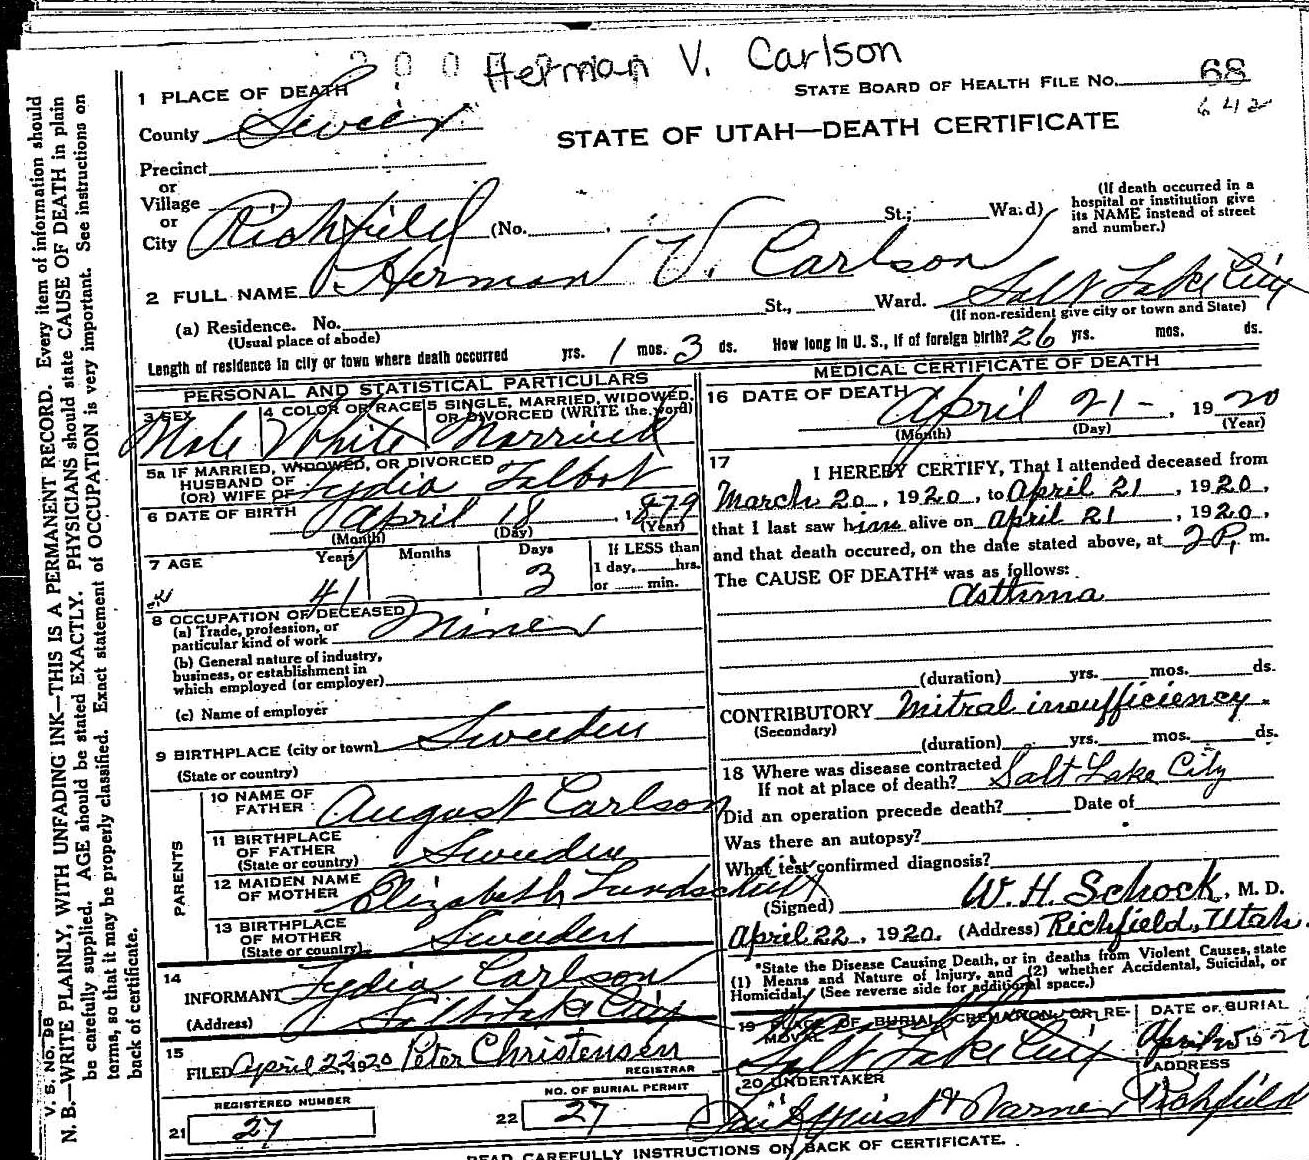 Herman V. Carlson
STATE BOARD OF HEALTH FILE NO. 68
642
1 PLACE OF DEATH
County Sevier
STATE OF UTAH—DEATH CERTIFICATE
Precinct
or
Village
or
City Richfield (No. St.; Ward)
(If death occurred in a
hospital or institution give
its NAME instead of street
and number.)
2 FULL NAME Herman V. Carlson
(a) Residence. No. St., Ward. Salt Lake City
(Usual place of abode) (If non-resident give city or town and State)
Length of residence in city or town where death occurred yrs. 1 mos. 3 ds. How long in U. S., if of foreign birth? 26 yrs. mos. ds.
PERSONAL AND STATISTICAL PARTICULARS
3 SEX Male
4 COLOR OR RACE White
5 SINGLE, MARRIED, WIDOWED, OR DIVORCED (WRITE the word) Married
5a IF MARRIED, WIDOWED, OR DIVORCED
HUSBAND OF
(OR) WIFE OF Lydia Talbot
6 DATE OF BIRTH April 18, 1879
(Month) (Day) (Year)
7 AGE Years Months Days If LESS than
1 day, hrs.
41 3 or min.
8 OCCUPATION OF DECEASED
(a) Trade, profession, or
particular kind of work Miner
(b) General nature of industry,
business, or establishment in
which employed (or employer)
(c) Name of employer
9 BIRTHPLACE (city or town) Sweden
(State or country)
PARENTS
10 NAME OF
FATHER August Carlson
11 BIRTHPLACE
OF FATHER Sweden
(State or country)
12 MAIDEN NAME
OF MOTHER Elizabeth
13 BIRTHPLACE
OF MOTHER Sweden
(State or country)
14
INFORMANT Lydia Carlson
(Address) Salt Lake City
15
FILED April 22 1920 Peter Christensen
REGISTRAR
REGISTERED NUMBER
21 27
NO. OF BURIAL PERMIT
22 27
MEDICAL CERTIFICATE OF DEATH
16 DATE OF DEATH April 21 -, 1920
(Month) (Day) (Year)
17
I HEREBY CERTIFY, That I attended deceased from
March 20, 1920, to April 21, 1920,
that I last saw him alive on April 21, 1920,
and that death occured, on the date stated above, at 2 P. m.
The CAUSE OF DEATH* was as follows:
Asthma
(duration) yrs. mos. ds.
CONTRIBUTORY Mitral insufficiency.
(Secondary)
(duration) yrs. mos. ds.
18 Where was disease contracted
If not at place of death? Salt Lake City
Did an operation precede death? Date of
Was there an autopsy?
What test confirmed diagnosis?
(Signed) W. H. Schock, M. D.
April 22, 1920. (Address) Richfield, Utah.
*State the Disease Causing Death, or in deaths from Violent Causes, state
(1) Means and Nature of Injury, and (2) whether Accidental, Suicidal, or
Homicidal. (See reverse side for additional space.)
19 PLACE OF BURIAL, CREMATION, OR RE-
MOVAL
Salt Lake City
DATE OF BURIAL
April 1920
20 UNDERTAKER
ADDRESS
Richfield
READ CAREFULLY INSTRUCTIONS ON BACK OF CERTIFICATE.
V. S. No. 98
N. B.—WRITE PLAINLY, WITH UNFADING INK—THIS IS A PERMANENT RECORD. Every item of information should
be carefully supplied. AGE should be stated EXACTLY. PHYSICIANS should state CAUSE OF DEATH in plain
terms, so that it may be properly classified. Exact statement of OCCUPATION is very important. See instructions on
back of certificate.